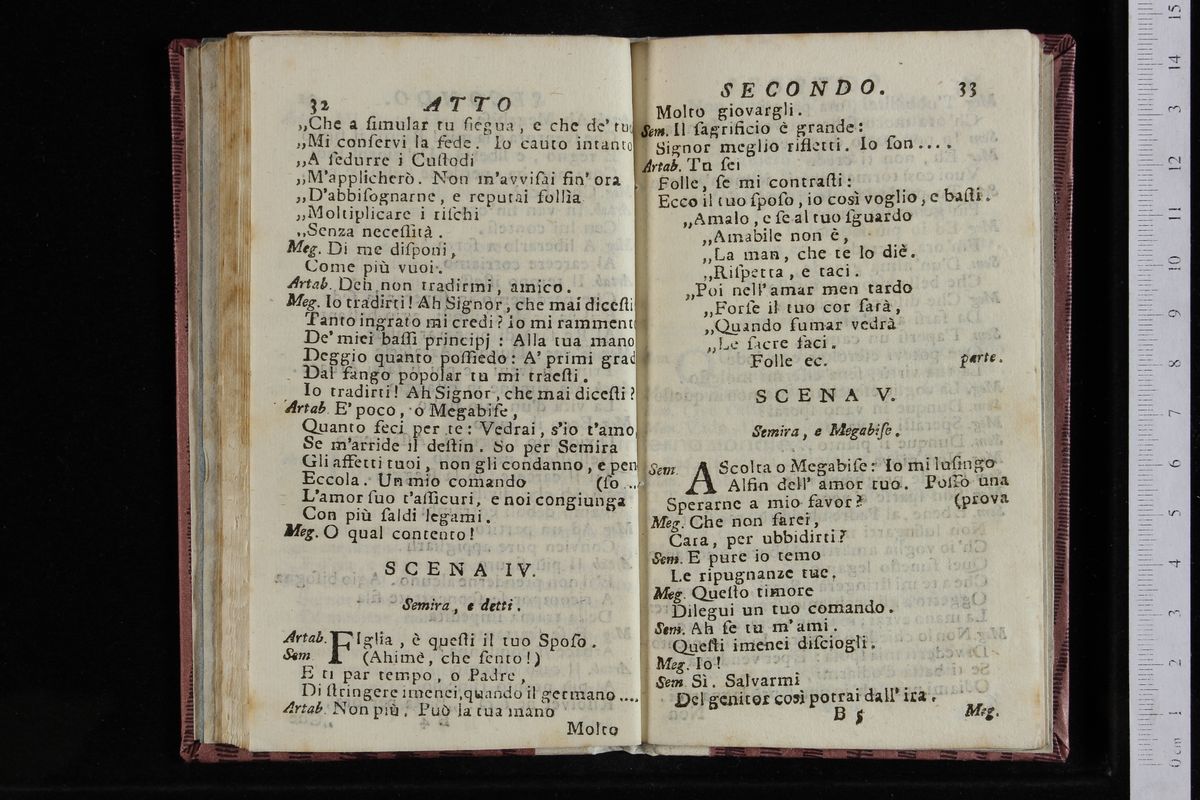 32 ATTO
„Che a ſimular tu ſiegua, e che de' tuo
„Mi conſervi la fede. Io cauto intanto
„A ſedurre i Cuſtodi
„M'applicherò. Non m'avviſai fin' ora
„D'abbiſognarne, e reputai follìa
„Moltiplicare i riſchi
„Senza neceſſità.
Meg. Di me diſponi,
Come più vuoi.
Artab. Deh non tradirmi, amico.
Meg. Io tradirti! Ah Signor, che mai diceſti
Tanto ingrato mi credi? Io mi ramment
De' miei baſſi principj: Alla tua mano
Deggio quanto poſſiedo: A' primi grad
Dal fango popolar tu mi traeſti.
Io tradirti! Ah Signor, che mai diceſti?
Artab. E' poco, o Megabiſe,
Quanto feci per te: Vedrai, s'io t'amo,
Se m'arride il deſtin. So per Semira
Gli affetti tuoi, non gli condanno, e pen
Eccola. Un mio comando (ſo ...
L'amor ſuo t'aſſicuri, e noi congiunga
Con più ſaldi legami.
Meg. O qual contento!
SCENA IV.
Semira, e detti.
Artab. FIglia, è queſti il tuo Spoſo.
Sem (Ahimè, che ſento!)
E ti par tempo, o Padre,
Di ſtringere imenei, quando il germano ....
Artab. Non più. Può la tua mano
Molto
SECONDO. 33
Molto giovargli.
Sem. Il ſagrificio è grande:
Signor meglio rifletti. Io ſon ....
Artab. Tu ſei
Folle, ſe mi contraſti:
Ecco il tuo ſpoſo, io così voglio, e baſti.
„Amalo, e ſe al tuo ſguardo
„Amabile non è,
„La man, che te lo diè.
„Riſpetta, e taci.
„Poi nell' amar men tardo
„Forſe il tuo cor ſarà,
„Quando fumar vedrà
„Le ſacre faci.
Folle ec. parte.
SCENA V.
Semira, e Megabiſe.
Sem. AScolta o Megabiſe: Io mi luſingo
Alfin dell' amor tuo. Poſſo una
Sperarne a mio favor? (prova
Meg. Che non farei,
Cara, per ubbidirti?
Sem. E pure io temo
Le ripugnanze tue.
Meg. Queſto timore
Dilegui un tuo comando.
Sem. Ah ſe tu m'ami.
Queſti imenei diſciogli.
Meg. Io!
Sem Sì. Salvarmi
Del genitor così potrai dall' ira.
B 5 Meg.
0 cm 1 2 3 4 5 6 7 8 9 10 11 12 13 14 15